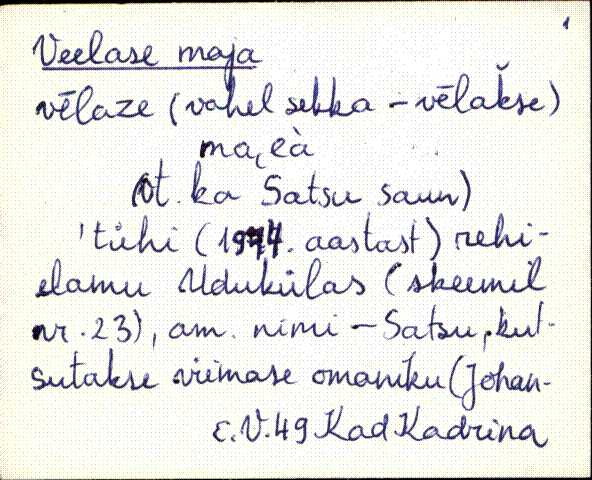 1
Veelase maja
vēlaze (vahel sekka - vēlakse)
ma, eà
(Vt. ka Satsu saun)
'tühi (1974. aastast) rehi-
elamu Udukülas (skeemil
nr. 23), am. nimi - Satsu, kut-
sutakse viimase omaniku (Johan-
E.V.49 Kad Kadrina